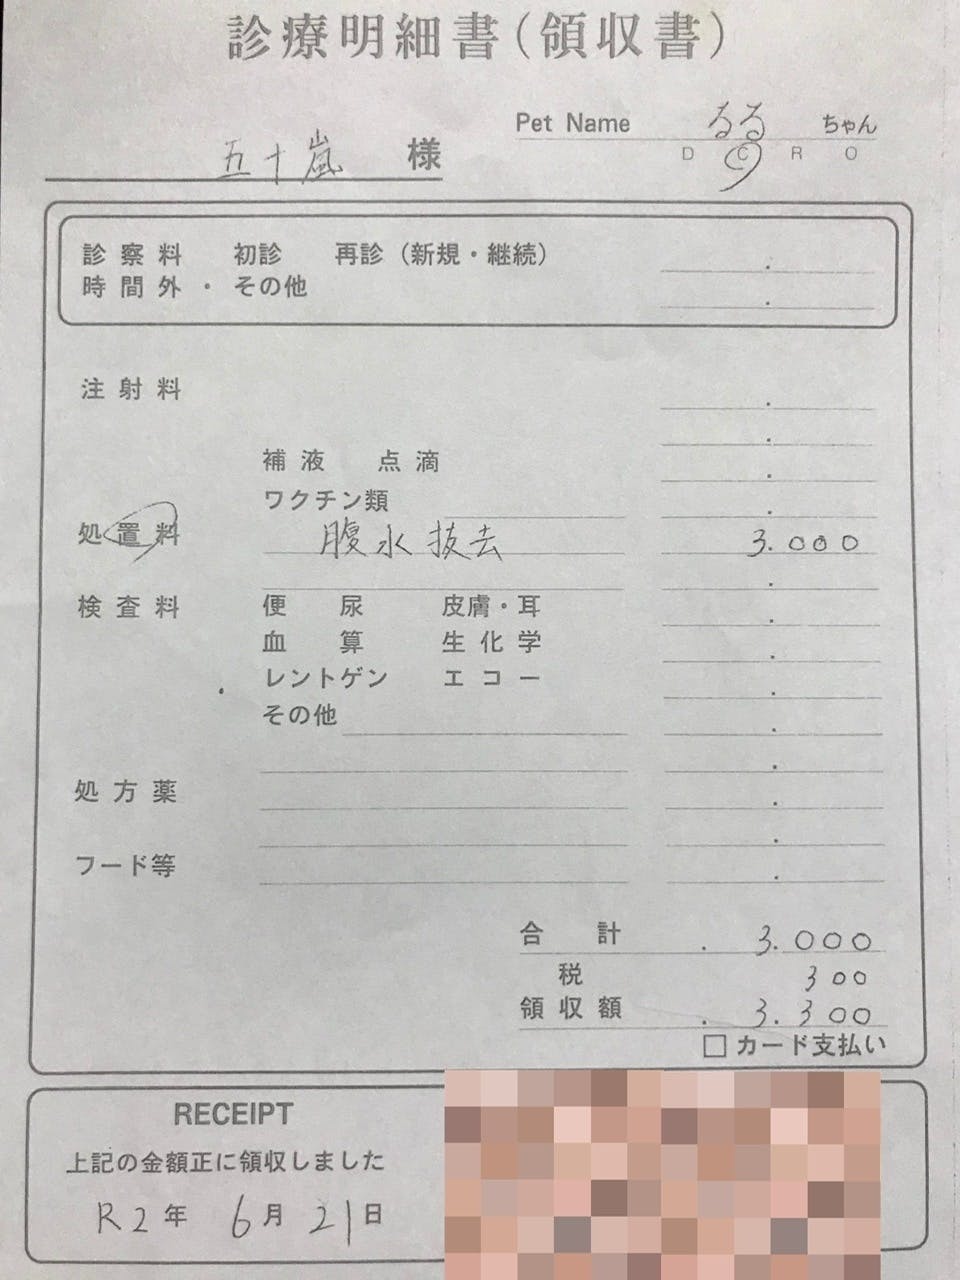 診療明細書(領収書)
Pet Name るる ちゃん
D C R O
五十嵐 様
診察料 初診 再診(新規・継続)
時間外・その他
注射料
補液 点滴
ワクチン類
処置料 腹水抜去 3.000
検査料 便 尿 皮膚・耳
血算 生化学
レントゲン エコー
その他
処方薬
フード等
合計 3.000
税 300
領収額 3.300
□ カード支払い
RECEIPT
上記の金額正に領収しました
R2年 6月 21日